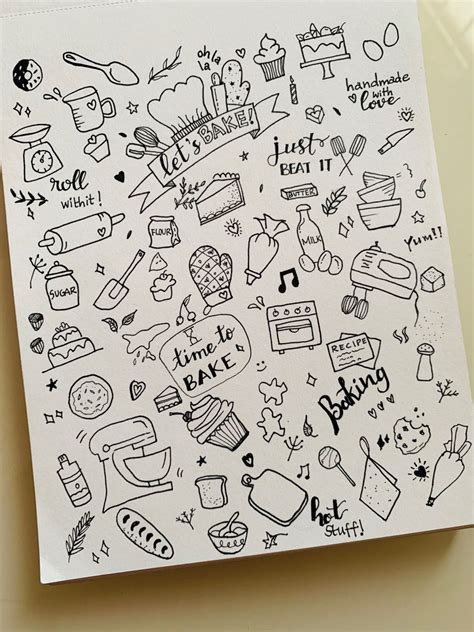 oh la la
let's BAKE!
handmade
with
love
just
BEAT IT
roll
with it!
BUTTER
FLOUR
MILK
Yum!!
SUGAR
time to
BAKE
RECIPE
Baking
hot
stuff!